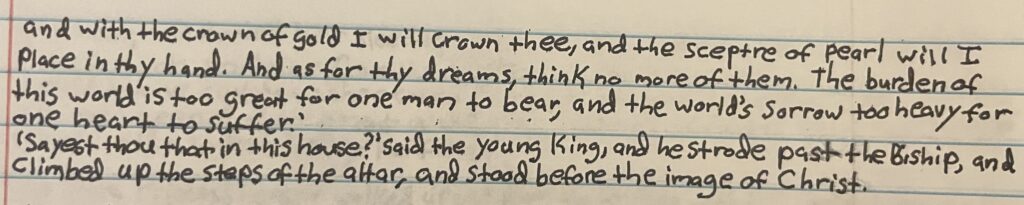 and with the crown of gold I will crown thee, and the sceptre of pearl will I
Place in thy hand. And as for thy dreams, think no more of them. The burden of
this world is too great for one man to bear, and the world's sorrow too heavy for
one heart to suffer.'
'Sayest thou that in this house?' said the young King, and he strode past the Biship, and
Climbed up the steps of the altar, and stood before the image of Christ.